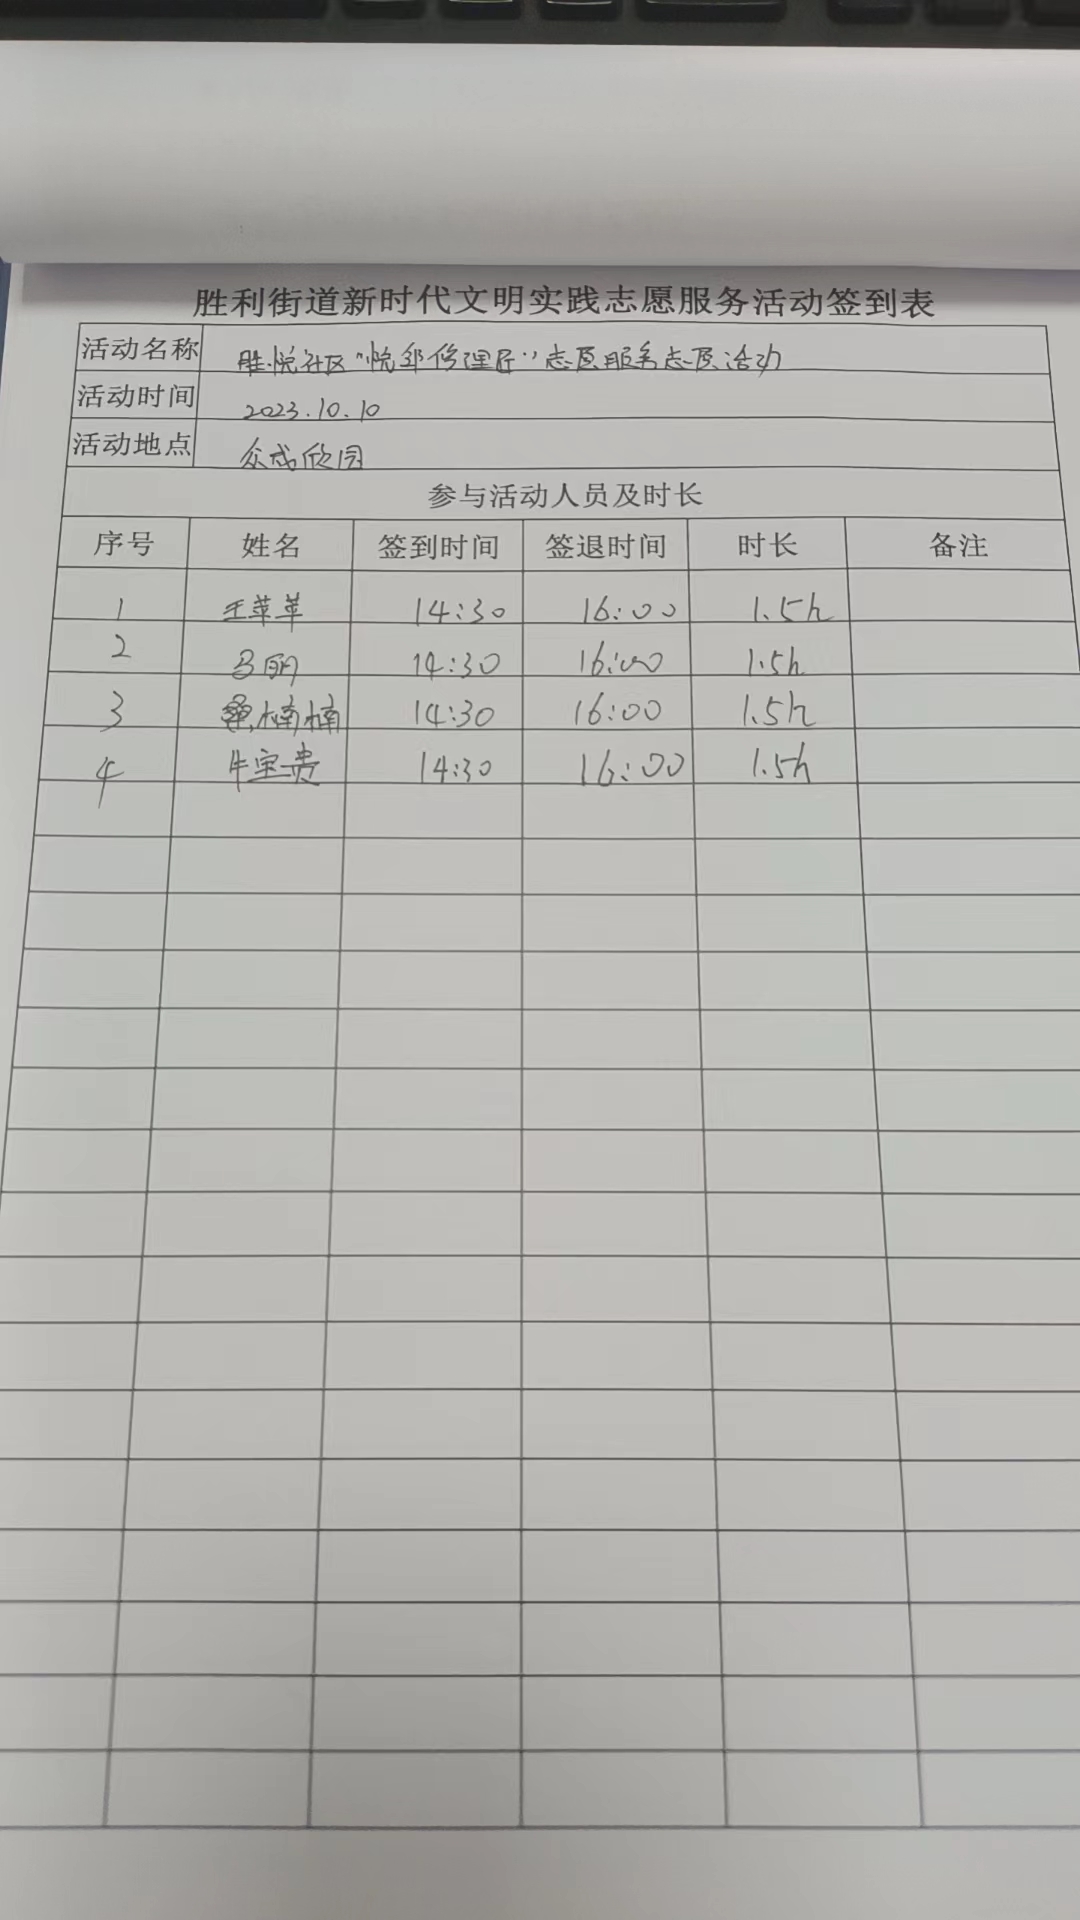 胜利街道新时代文明实践志愿服务活动签到表
活动名称 胜悦社区“悦邻修理匠”志愿服务志愿活动
活动时间 2023.10.10
活动地点 众成欣园
参与活动人员及时长
序号 姓名 签到时间 签退时间 时长 备注
1 王苹苹 14:30 16:00 1.5h
2 马丽 14:30 16:00 1.5h
3 桑楠楠 14:30 16:00 1.5h
4 牛宝贵 14:30 16:00 1.5h